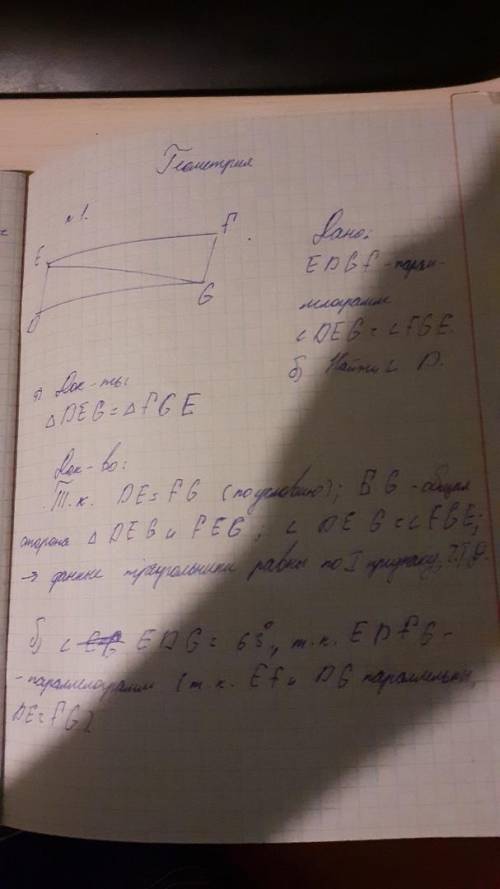 Геометрия
№1.
E
F
D
G
Дано:
EDGF - парал-
лелограмм
∠DEG = ∠FGE
б) Найти ∠ D.
а) Док-ть:
△DEG = △FGE
Док-во:
Т.к. DE = FG (по условию); EG - общая
сторона △ DEG и FEG; ∠ DEG = ∠FGE;
→ данные треугольники равны по I признаку,
б) ∠ EDG = 68°, т.к. EDFG -
- параллелограмм (т.к. EF и DG параллельны,
DE = FG)